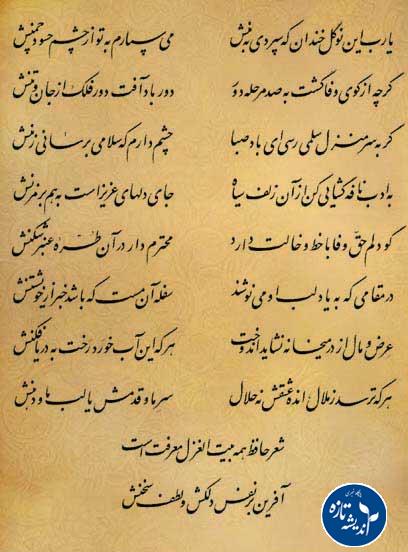 یا رب این نوگل خندان که سپردی به منش می سپارم به تو از چشم حسود چمنش
گرچه از کوی وفا گشت به صد مرحله دور دور باد آفت دور فلک از جان و تنش
گر به سر منزل سلمی رسی ای باد صبا چشم دارم که سلامی برسانی ز منش
به ادب نافه گشایی کن از آن زلف سیاه جای دلهای عزیز است به هم برمزنش
گو دلم حقّ وفا با خط و خالت دارد محترم دار در آن طرّه عنبر شکنش
در مقامی که به یاد لب او می نوشند سفله آن مست که باشد خبر از خویشتنش
عرض و مال از در میخانه نشاید اندوخت هر که این آب خورد رخت به دریا فکنش
هر که ترسد ز ملال انده عشقش نه حلال سر ما و قدمش یا لب ما و دهنش
شعر حافظ همه بیت الغزل معرفت است
آفرین بر نفس دلکش و لطف سخنش
پایگاه خبری
اندیشه تازه